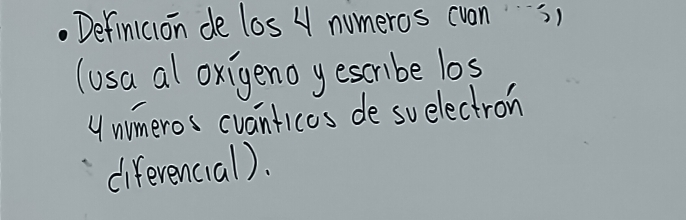 • Definición de los 4 numeros
(usa al oxígeno y escribe los
4 números cuánticos de su electrón
diferencial).